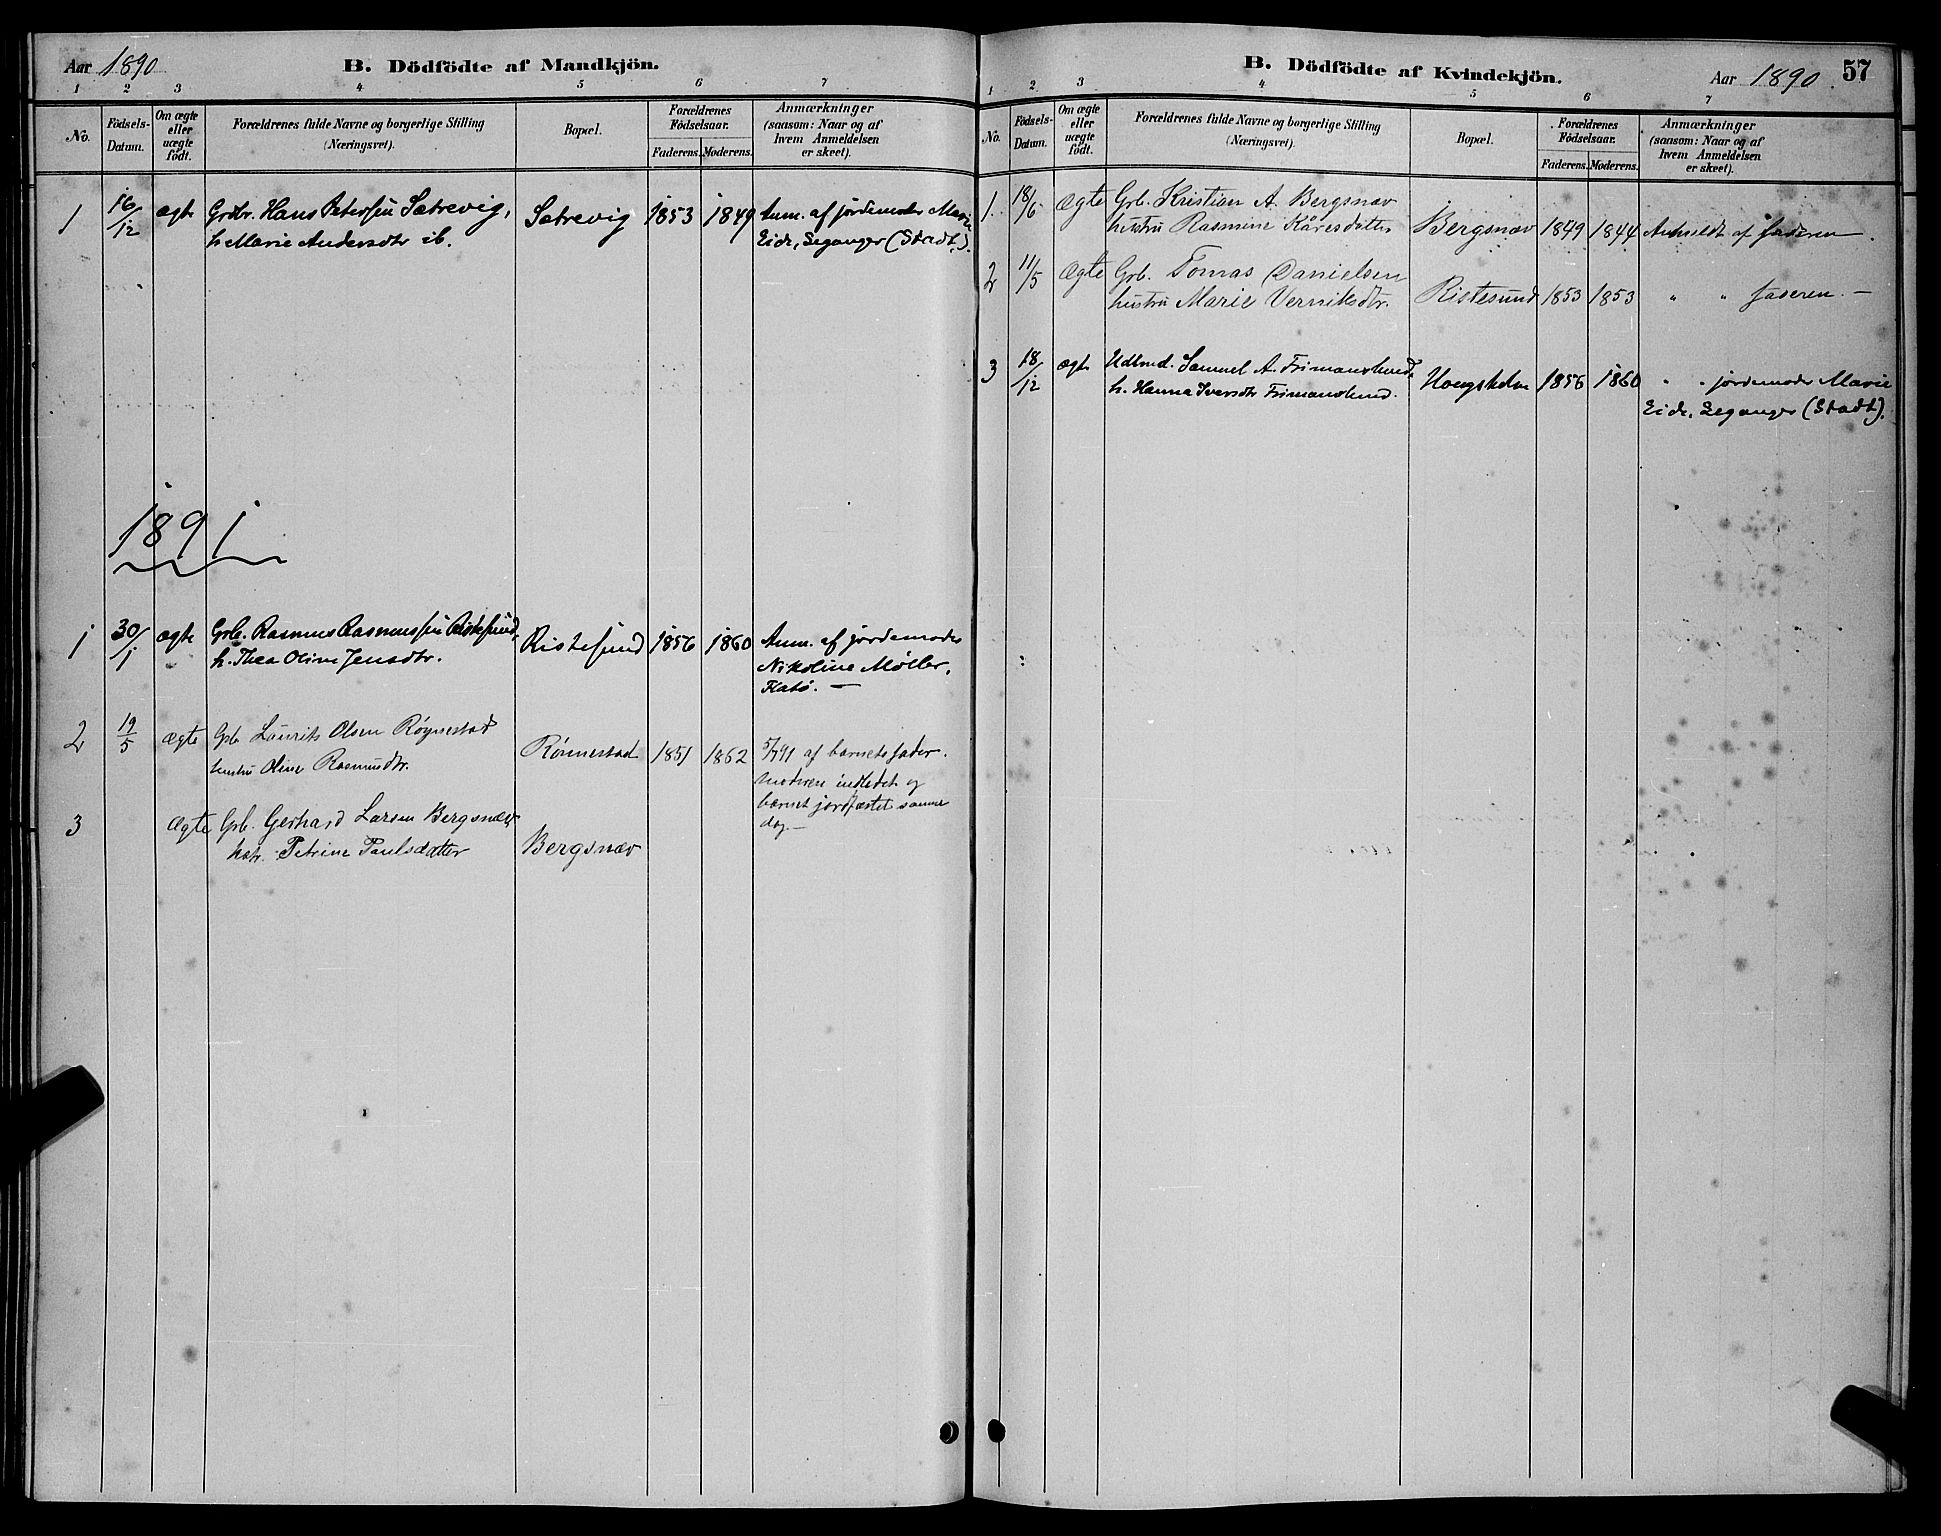 Aar 1890
B. Dödfödte af Mandkjön.
1 2 3 4 5 6 7
No.
Födsels-
Datum.
Om ægte
eller
uægte
födt.
Forældrenes fulde Navne og borgerlige Stilling
(Næringsvei).
Bopæl.
Forældrenes
Födselsaar.
Faderens. Moderens.
Anmærkninger
(saasom: Naar og af
hvem Anmeldelsen
er skeet).
1 16/12 ægte Grdbr. Hans Peterssen Sætrevig, Sætrevig 1853 1849 Anm. af jordemoder Marie
h. Marie Andersdtr ib. Eide, Seganger (Stadt).
1891
1 30/1 ægte Grb. Rasmus Rasmussen Ristesund, Ristesund 1856 1860 Anm. af jordemoder
h. Thea Oline Jensdtr. Nikoline Møller,
Flatö. —
2 19/5 ægte Grb. Laurits Olsen Røynestad
hustru Oline Rasmusdtr. Rönnestad 1851 1862 5/7 91 af barnets fader.
Moderen indledet og
barnet jordfæstet samme
dag —
3 Ægte Grb. Gerhard Larsen Bergsnæv
hstr. Petrine Paulsdatter Bergsnæv
B. Dödfödte af Kvindekjön.
Aar 1890. 57
1 2 3 4 5 6 7
No.
Födsels-
Datum.
Om ægte
eller
uægte
födt.
Forældrenes fulde Navne og borgerlige Stilling
(Næringsvei).
Bopæl.
Forældrenes
Födselsaar.
Faderens. Moderens.
Anmærkninger
(saasom: Naar og af
hvem Anmeldelsen
er skeet).
1. 18/6 Ægte Grb. Kristian A. Bergsnæv
hustru Rasmine Kåresdatter Bergsnæv 1849 1844 Anmeldt af faderen.
2 11/5 Ægte Grb. Tomas Danielsen
hustru Marie Verniksdtr. Ristesund 1853 1853 " " faderen. —
3 18/12 ægte Udlmd. Samuel A. Frimanslund, Hougsholm 1856 1860 " " jordemoder Marie
h. Hanna Iversdtr Frimanslund. Eide, Seganger (Stadt).